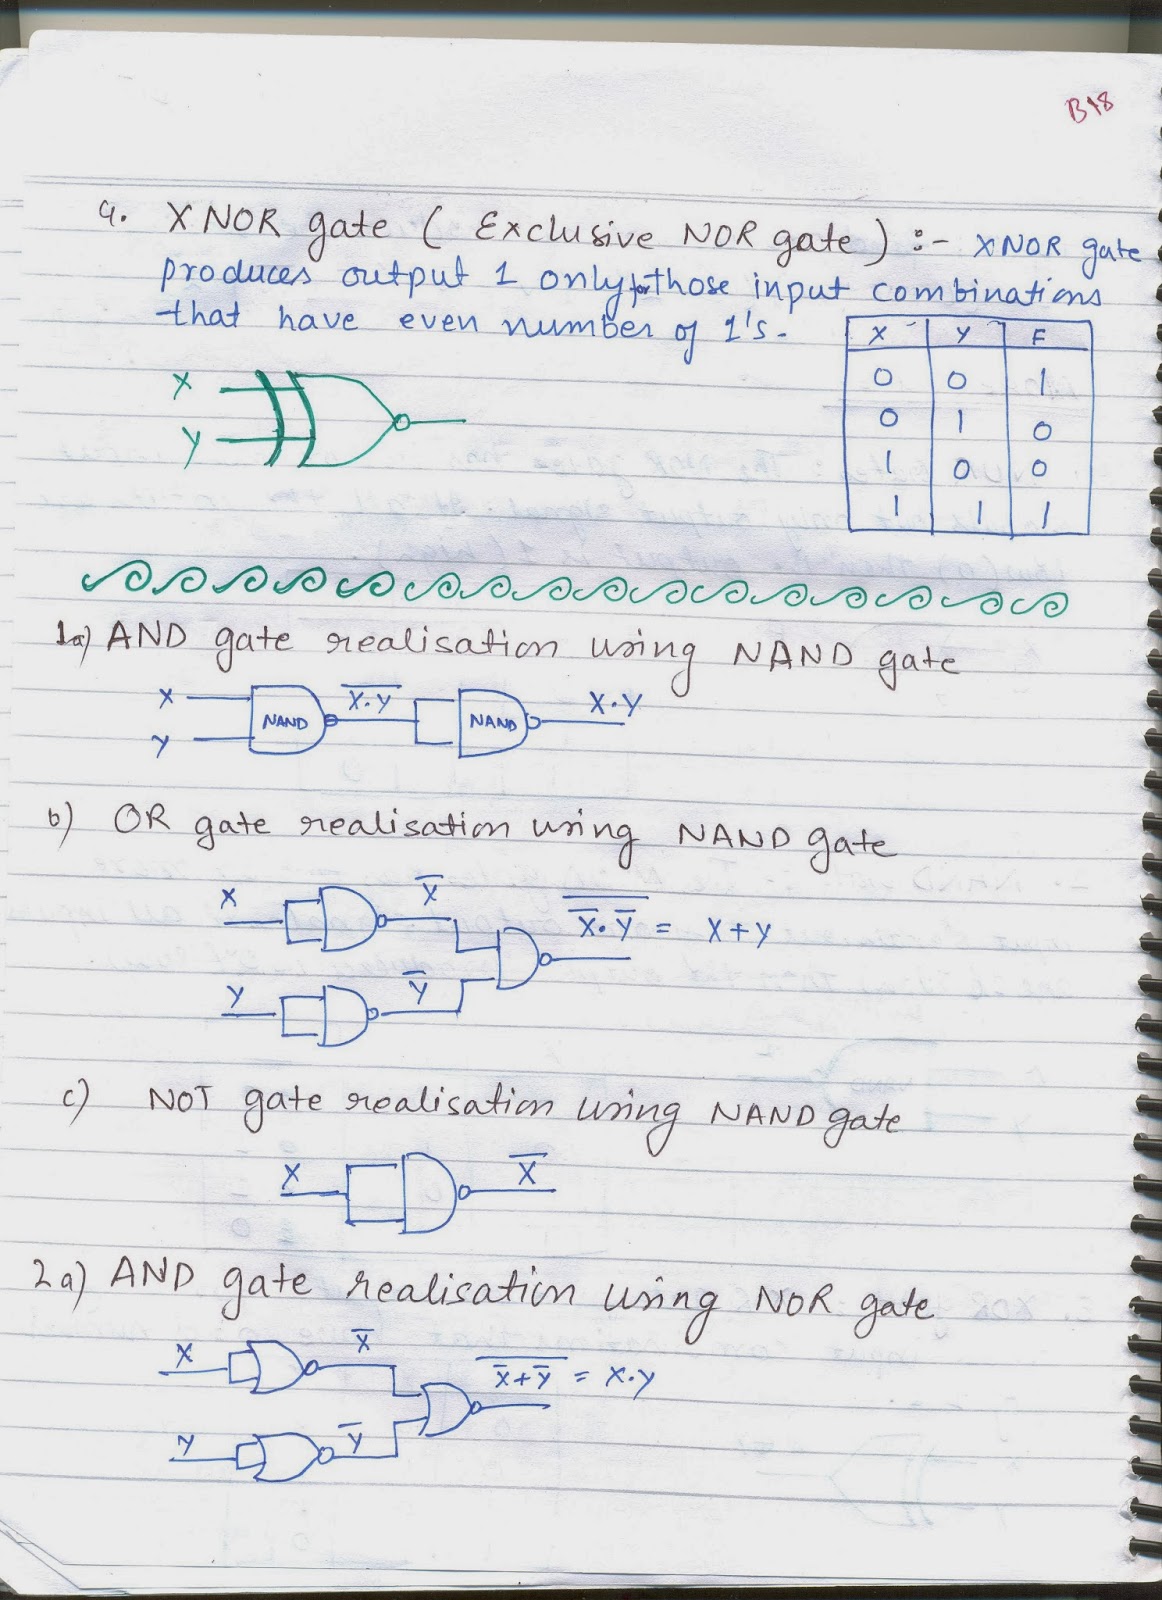 B18
4. XNOR gate ( Exclusive NOR gate ) :- XNOR gate
produces output 1 only for those input combinations
that have even number of 1's.
X Y F
0 0 1
0 1 0
1 0 0
1 1 1
X
Y
1a) AND gate realisation using NAND gate
X NAND X̅.̅Y̅ NAND X.Y
Y
b) OR gate realisation using NAND gate
X X̅
X̅.Y̅ = X+Y
Y Y̅
c) NOT gate realisation using NAND gate
X X̅
2a) AND gate realisation using NOR gate
X X̅
X̅+Y̅ = X.Y
Y Y̅